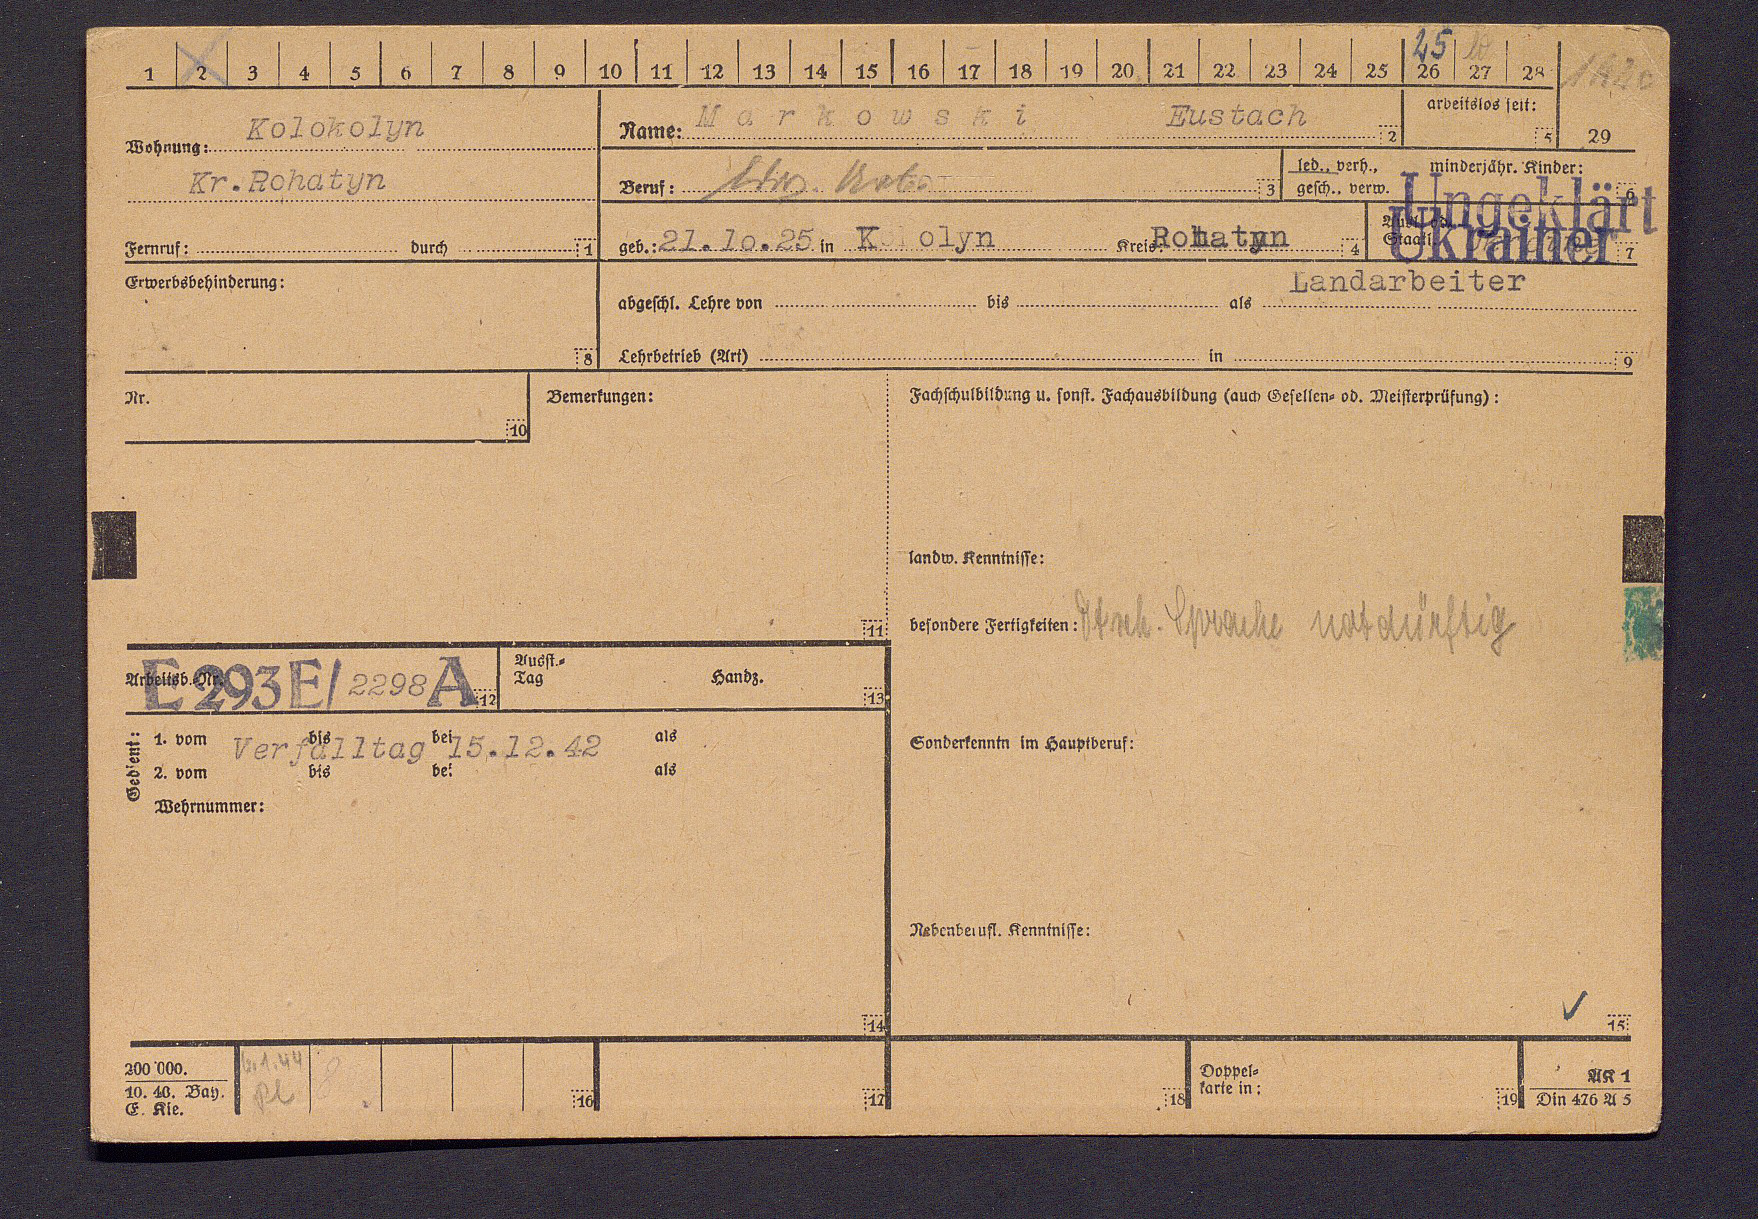 1 2 3 4 5 6 7 8 9 10 11 12 13 14 15 16 17 18 19 20 21 22 23 24 25 26 27 28
25
Wohnung: Kolokolyn
Kr. Rohatyn
Fernruf: durch 1
Name: Markowski Eustach 2
arbeitslos seit: 5
29
Beruf: 3
led., verh., gesch., verw.
minderjähr. Kinder: 6
Ungeklärt
geb.: 21.10.25 in K olyn Kreis: Rohatyn 4
Staat. Ukrainer 7
Erwerbsbehinderung: 8
Landarbeiter
abgeschl. Lehre von bis als
Lehrbetrieb (Art) in 9
Nr. 10
Bemerkungen: 11
Fachschulbildung u. sonst. Fachausbildung (auch Gesellen- od. Meisterprüfung):
landw. Kenntnisse:
besondere Fertigkeiten: Dtsch. Sprache notdürftig
Arbeitsb.-Nr. E 293 E/ 2298 A 12
Ausst.-Tag Handz. 13
Gedient:
1. vom bis bei als
Verfalltag 15.12.42
2. vom bis bei als
Wehrnummer:
14
Sonderkenntn im Hauptberuf:
Nebenberufl. Kenntnisse:
✓
15
200 000.
10. 43. Bay.
E. Kle.
16
17
18
Doppel-
karte in:
19
AK 1
Din 476 A 5